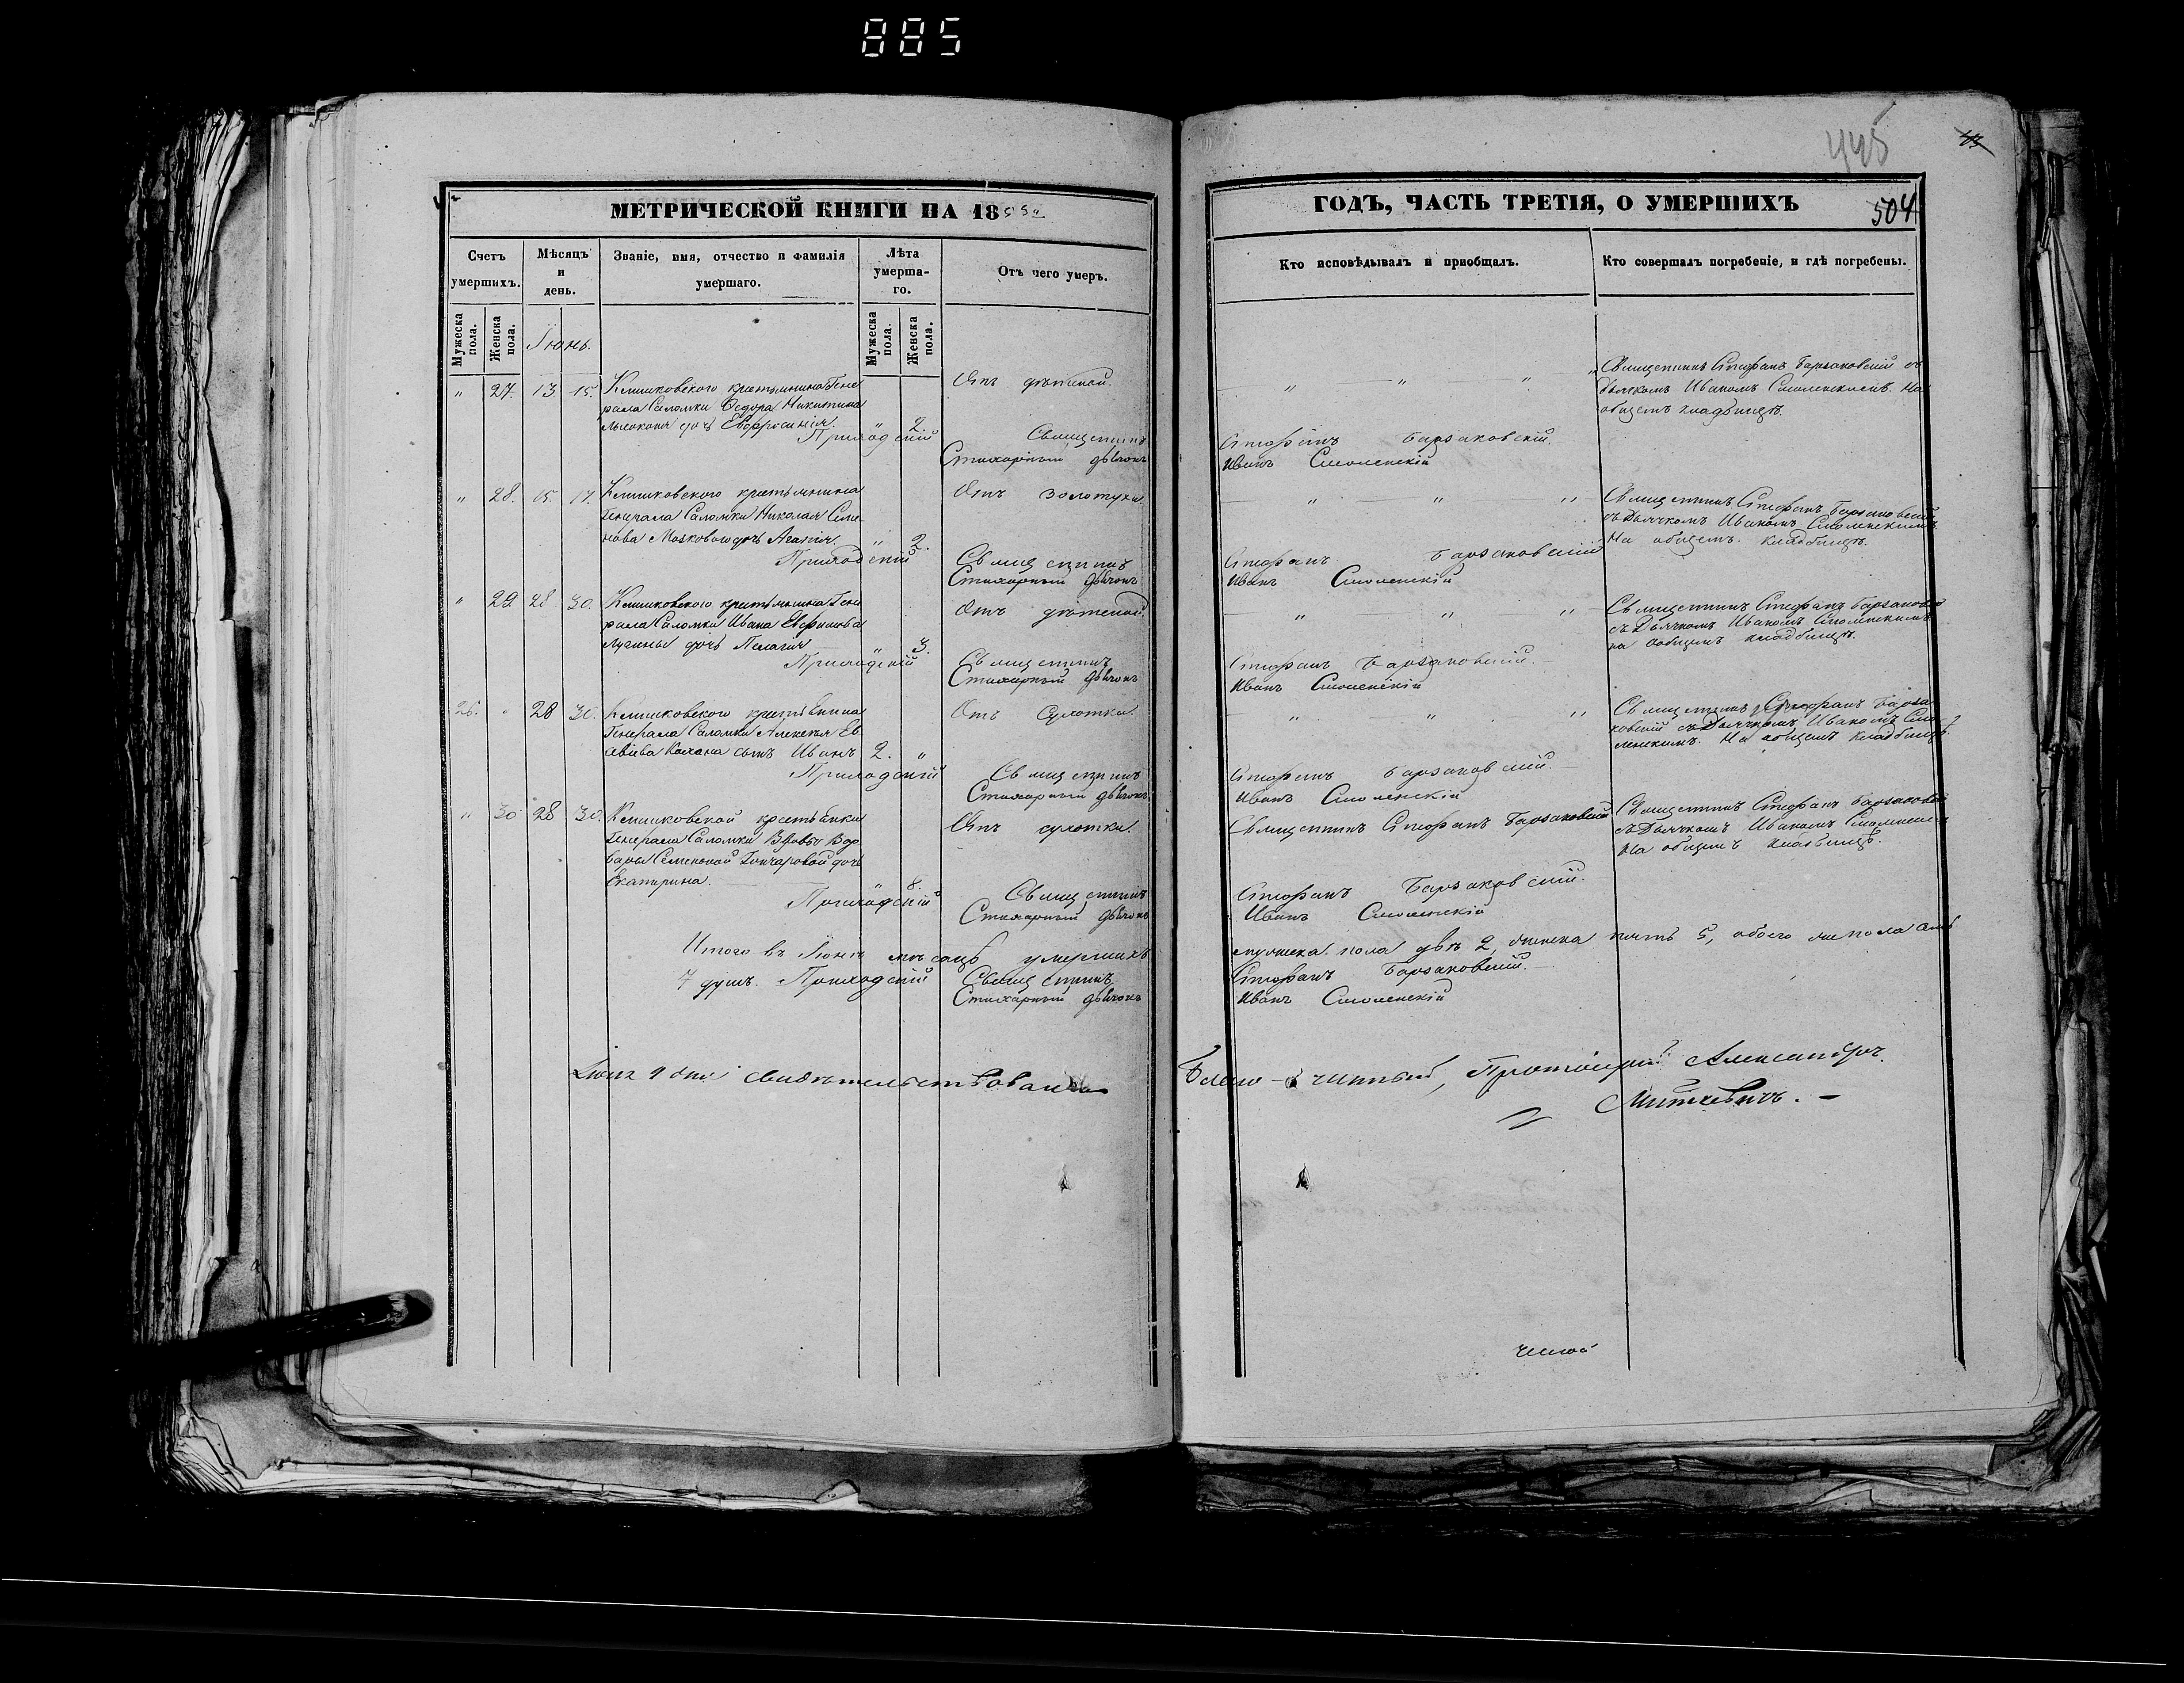 885
445
43
МЕТРИЧЕСКОЙ КНИГИ НА 1855
ГОДЪ, ЧАСТЬ ТРЕТІЯ, О УМЕРШИХЪ
504
Счетъ умершихъ.
Мѣсяцъ и день.
Званіе, имя, отчество и фамилія умершаго.
Лѣта умерша-го.
Отъ чего умеръ.
Кто исповѣдывалъ и пріобщалъ.
Кто совершалъ погребеніе, и гдѣ погребены.
Мужеска пола.
Женска пола.
Іюнь.
Мужеска пола.
Женска пола.
" 27. 13 15. Климковского крестьянина Гене
рала Саломки Федора Никитина
дочь Евфросинія. " 2.
Отъ
" " "
Священникъ Стефанъ Барзаковскій съ
Дьячкомъ Иваномъ Смоленскимъ. На
общемъ кладбищѣ.
Приходскій Священникъ Стефанъ Барзаковскій.
Стихарный дьячокъ Иванъ Смоленскій
" 28. 15. 17. Климковского крестьянина
Генерала Саломки Николая Семе
нова дочь Агафія. " 2.
Отъ золотухи.
" " "
Священникъ Стефанъ Барзаковскій
съ Дьячкомъ Иваномъ Смоленскимъ
На общемъ. кладбищѣ.
Приходскій Священникъ Стефанъ Барзаковскій
Стихарный дьячокъ Иванъ Смоленскій
" 29 28 30. Климковского крестьянина Гене
рала Саломки Ивана
дочь Пелагія " 3.
Отъ
" " "
Священникъ Стефанъ Барзаковскій
съ Дьячкомъ Иваномъ Смоленскимъ
на общемъ кладбищѣ.
Приходскій Священникъ Стефанъ Барзаковскій.
Стихарный дьячокъ Иванъ Смоленскій
26. " 28 30. Климковского
Генерала Саломки Алексѣя
сынъ Иванъ 2. "
Отъ Сухотки.
" " "
Священникъ Стефанъ Барза
ковскій съ Дьячкомъ Иваномъ Смо
ленскимъ. На общемъ кладбищѣ.
Приходскій Священникъ Стефанъ Барзаковскій.
Стихарный дьячокъ Иванъ Смоленскій
" 30 28 30. Климковской крестьянки
Генерала Саломки Вдовы Вар
вары Семеновой Гончаровой дочь
Екатерина. " 8.
Отъ сухотки.
Священникъ Стефанъ Барзаковскій
Священникъ Стефанъ Барзаковскій
съ Дьячкомъ Иваномъ
На общемъ кладбищѣ.
Приходскій Священникъ Стефанъ Барзаковскій.
Стихарный дьячокъ Иванъ Смоленскій
Итого въ Іюнѣ мѣсяцѣ умершихъ мужеска пола двѣ 2, женска пять 5, обоего же пола семь
7 душъ. Приходскій Священникъ Стефанъ Барзаковскій.
Стихарный дьячокъ Иванъ Смоленскій
9 дня свидѣтельствовалъ Благочинный, Протоіерей Александръ
Миткевичъ.